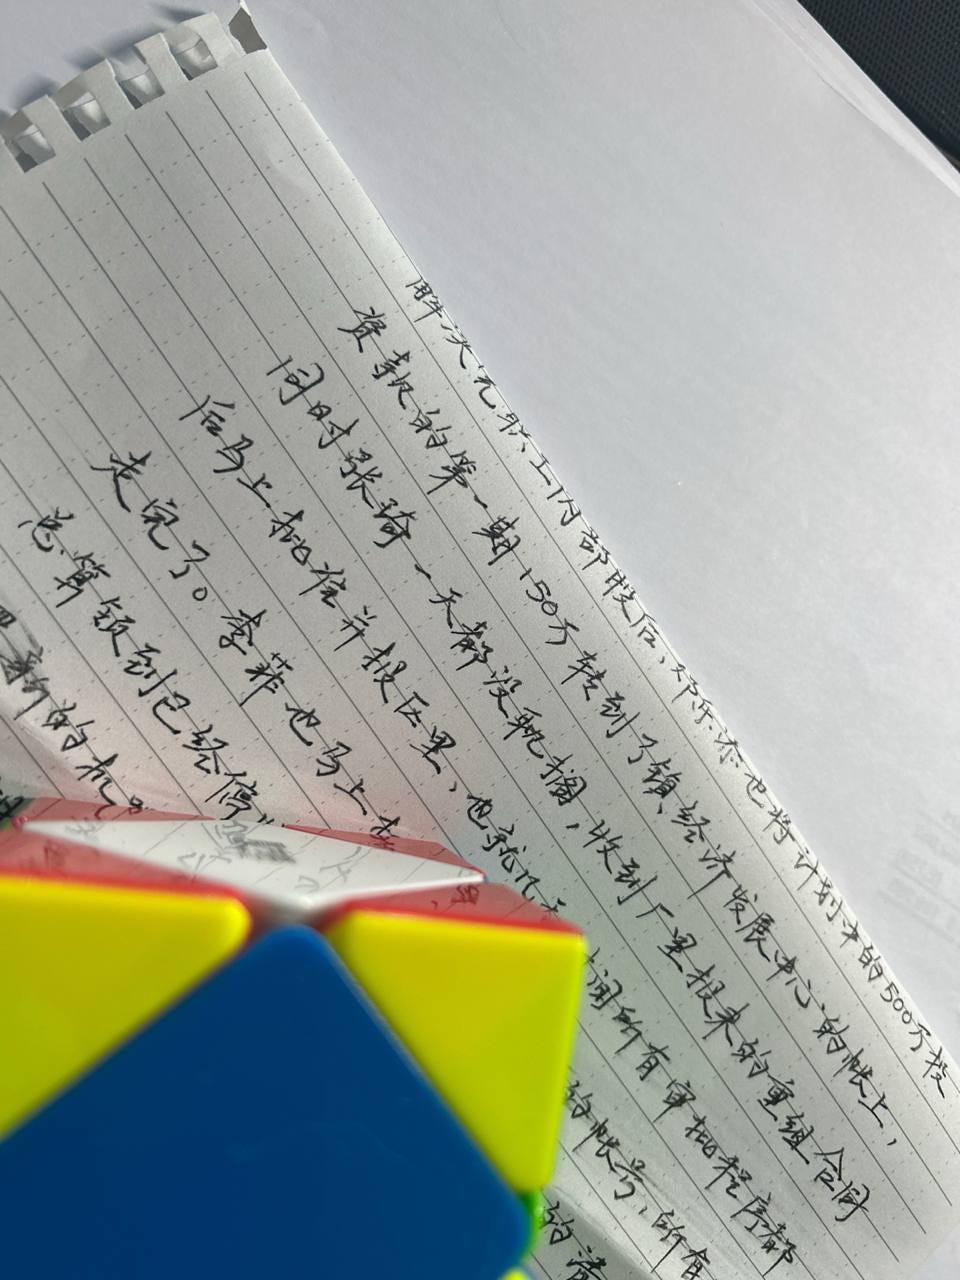 解决完职工内部股后，邓际奈也将计划中的500万投
资款的第一期150万转到了镇经济发展中心的帐上，
同时张琦一天都没耽搁，收到厂里报来的重组合同
后马上批准并报区里，也就几天 间所有审批程序都
走完了。李菲也马上 的帐号，所有
总算领到已经停 的清
新的机